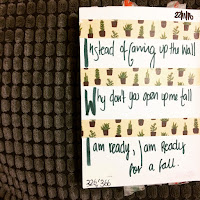 Instead of caving up the wall
Why don't you open up me fall
I am ready, I am ready
for a fall.
326/366